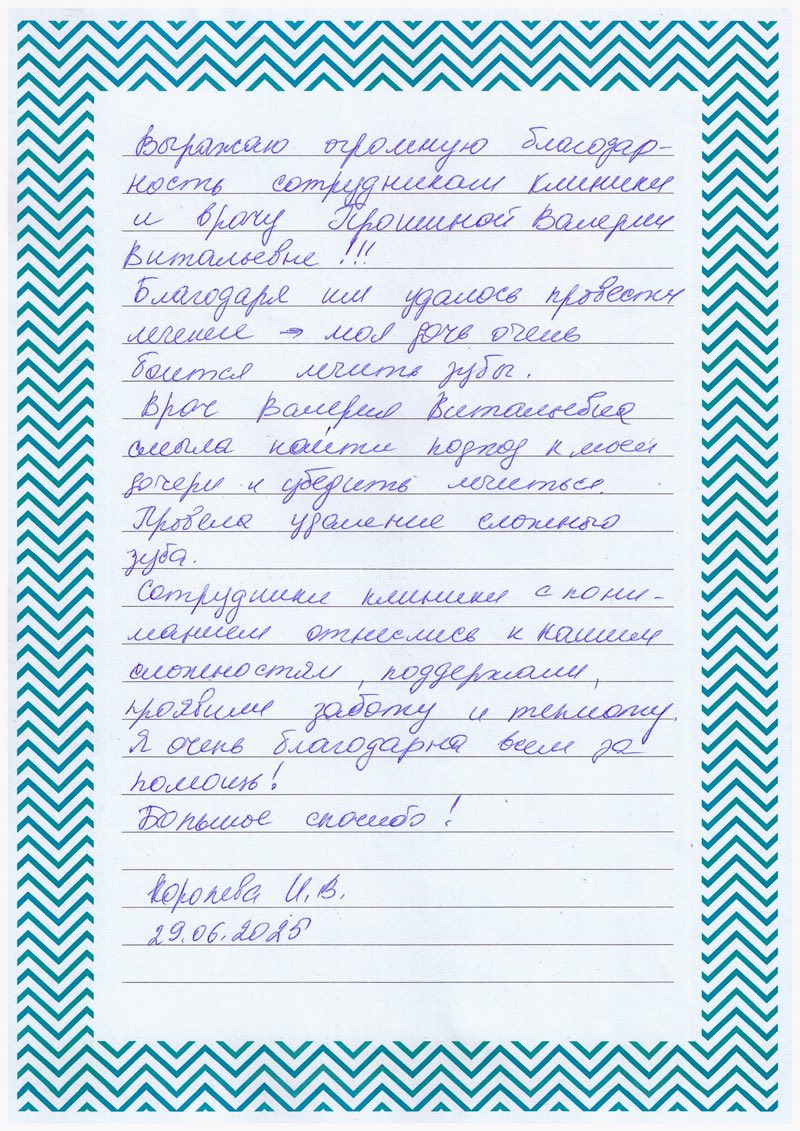 Выражаю огромную благодар-
ность сотрудникам клиники
и врачу Прошиной Валерии
Витальевне!!!
Благодаря им удалось провести
лечение → моя дочь очень
боится лечить зубы.
Врач Валерия Витальевна
смогла найти подход к моей
дочери и убедить лечиться.
Провела удаление сложного
зуба.
Сотрудники клиники с пони-
манием отнеслись к нашим
сложностям, поддержали,
проявили заботу и теплоту.
Я очень благодарна всем за
помощь!
Большое спасибо!
Королева И.В.
29.06.2025